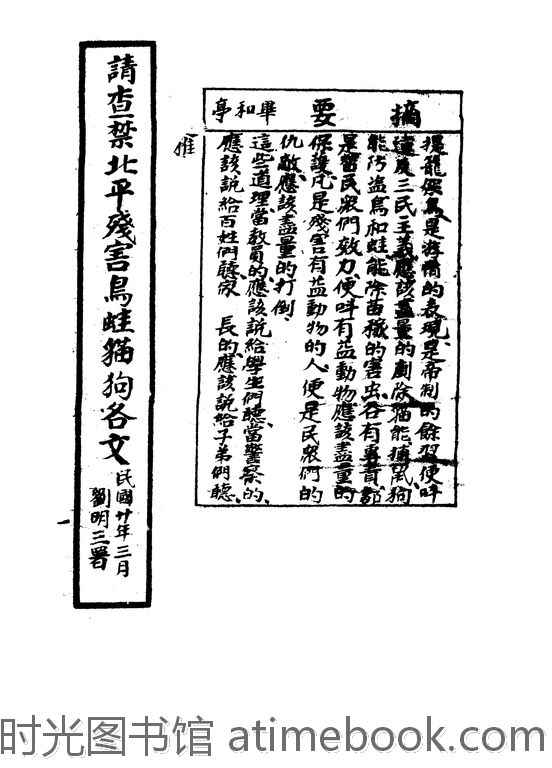 請查禁北平殘害鳥蛙猫狗各文
民國廿年三月
劉明三署
摘要
畢和亭
提籠架鳥是游惰的表現是帝制的餘習便叫
違反三民主義應該盡量的剷除猫能捕鼠狗
能防盜鳥和蛙能除苗稼的害虫各有專責都
是當民衆們效力便叫有益動物應該盡量的
保護凡是殘害有益動物的人便是民衆們的
仇敵應該盡量的打倒
這些道理當教員的應該說給學生們聽當警察的
應該說給百姓們聽家長的應該說給子弟們聽
时光图书馆 atimebook.com